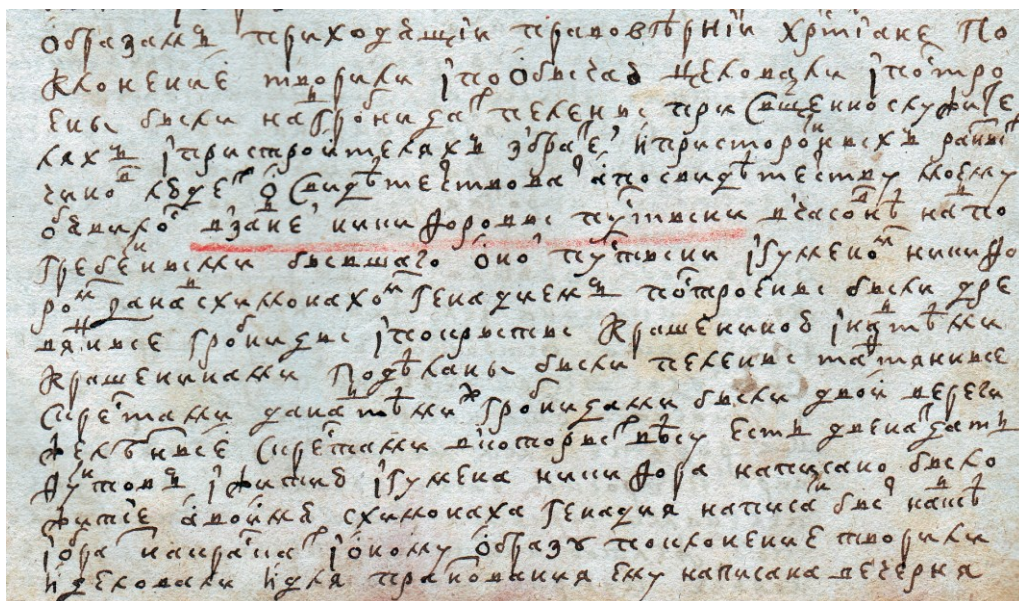 Образамъ приходящіи православѣрніи Хртіане По
клонение творили іпо Обычаю целовали іпостро
ены были нагробницах пелены при Священнослужите
ляхъ іпристроителяхъ збратеи ипристоронныхъ разных
чинов людех Освидѣтелствовал апосвидѣтелству моему
обявилос взданей никифоровы пустыни вчасовнѣ напо
гребенными бывшаго оной пустыни ігуменом никифо
ром данасхимонахом генадием построены были дре
вянные гробницы іпокрыты крашениною інатѣми
крашенинами Подѣланы были пелены тафтяные
Скрестами данатѣмиж гробницами были двои вериги
желѣзные Скрестами вкоторых вѣсу есть двенадцать
фунтовъ іжитию ігумена никифора написано было
житие авоимя схимонаха генадия написан был нацкѣ
іобраз накрасках іоному Образу поклонение творили
ицеловали идля празнования ему написана вечерня